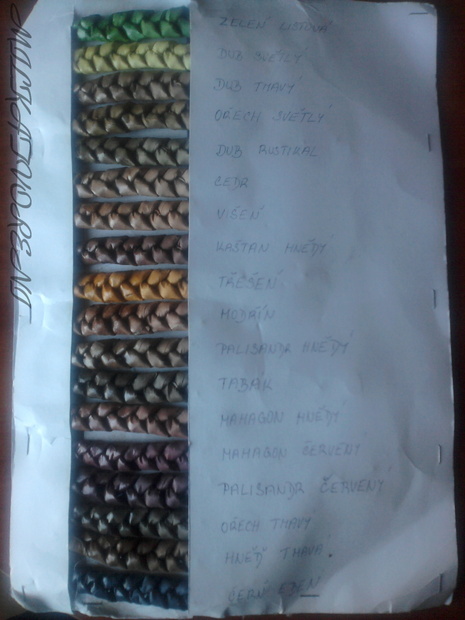 ZELEŇ LISTOVÁ
DUB SVĚTLÝ
DUB TMAVÝ
OŘECH SVĚTLÝ
DUB RUSTIKAL
CEDR
VIŠEŇ
KAŠTAN HNĚDÝ
TŘEŠEŇ
MODŘÍN
PALISANDR HNĚDÝ
TABÁK
MAHAGON HNĚDÝ
MAHAGON ČERVENÝ
PALISANDR ČERVENÝ
OŘECH TMAVÝ
HNĚĎ TMAVÁ.
ČERŇ EBEN